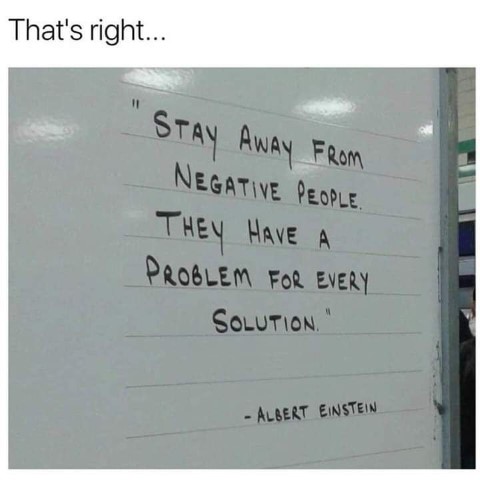 That's right...
" STAY AWAY FROM
NEGATIVE PEOPLE.
THEY HAVE A
PROBLEM FOR EVERY
SOLUTION. "
- ALBERT EINSTEIN